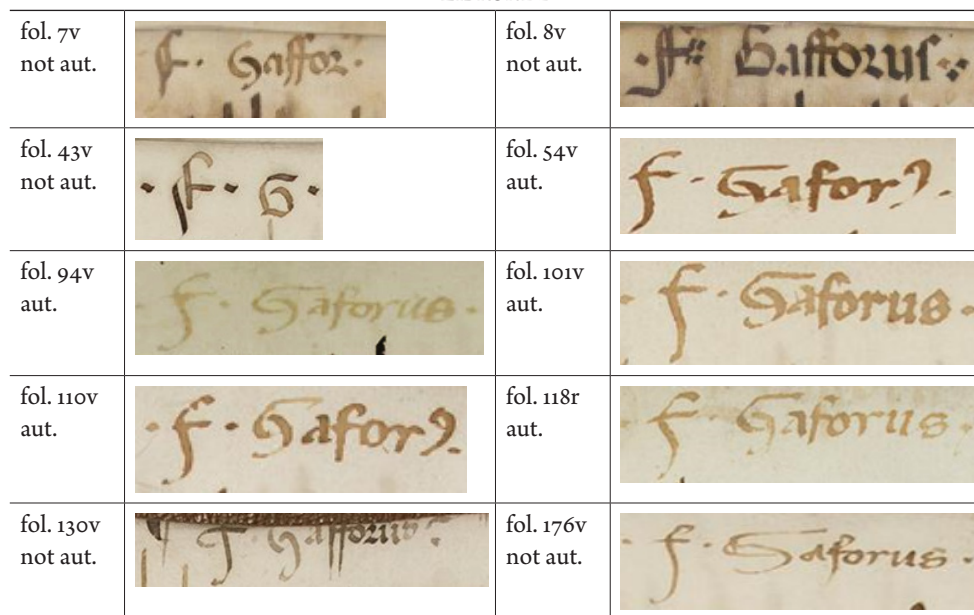 fol. 7v
not aut.
f. Gaffor.
fol. 8v
not aut.
· ff: Gafforus ·:
fol. 43v
not aut.
· f · G ·
fol. 54v
aut.
f · Gaforꝰ.
fol. 94v
aut.
· f · Gaforus ·
fol. 101v
aut.
· f · Gaforus ·
fol. 110v
aut.
· f · Gaforꝰ.
fol. 118r
aut.
· f · Gaforus ·
fol. 130v
not aut.
f · Gafforus ·
fol. 176v
not aut.
· f · Gaforus ·